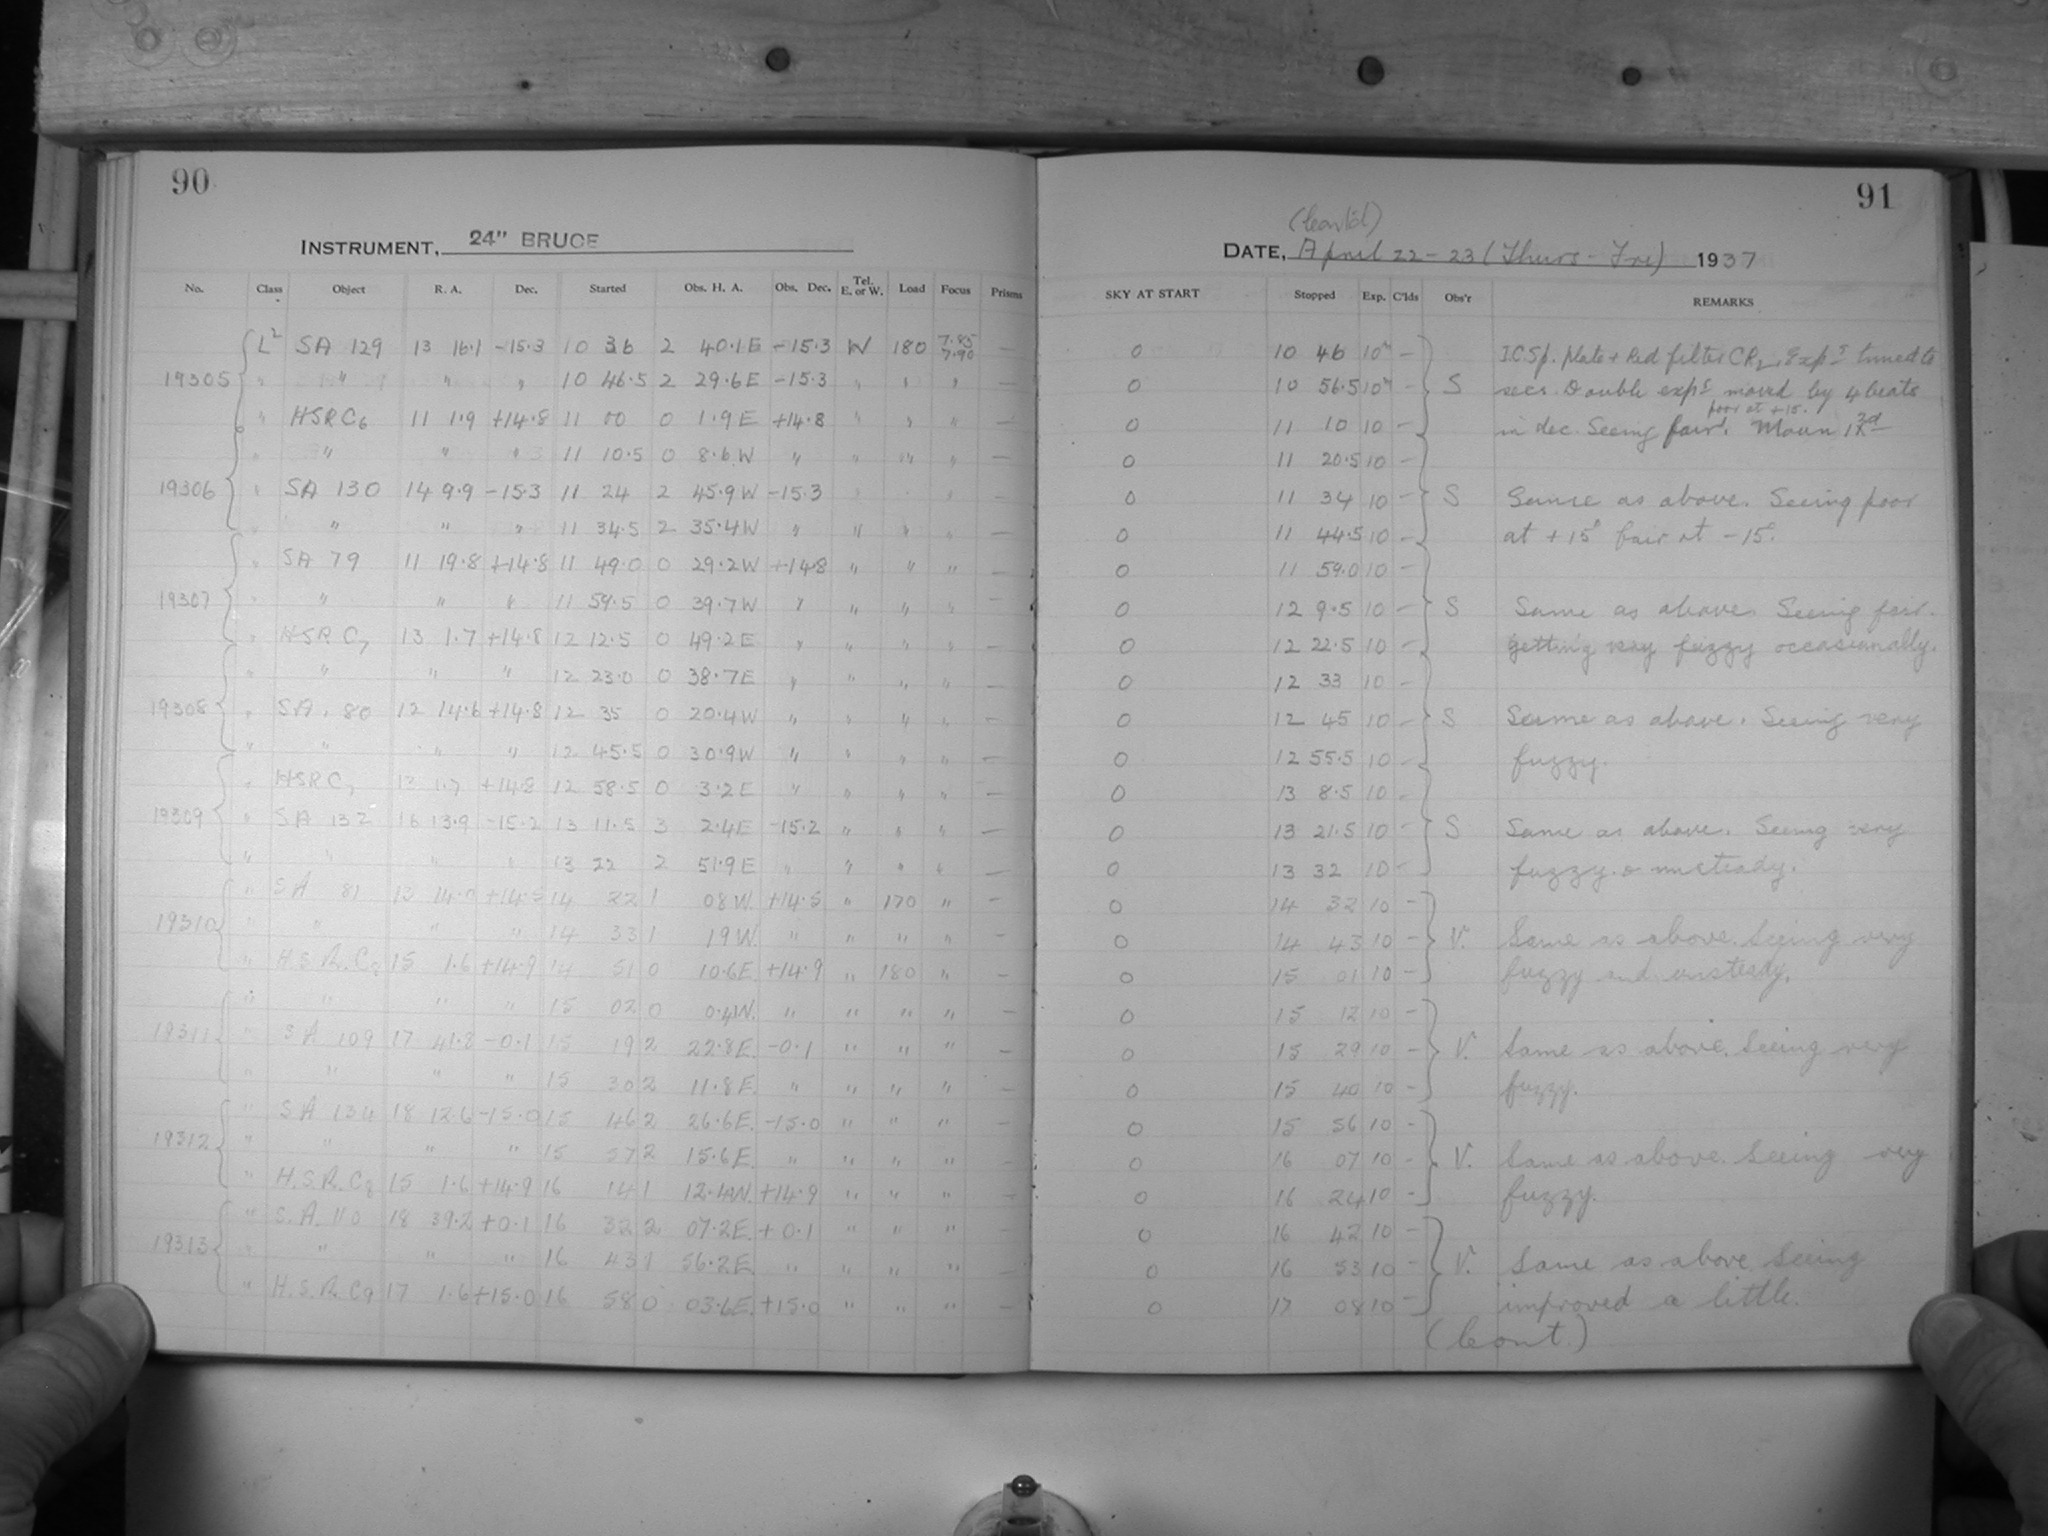 90
INSTRUMENT, 24" BRUCE
No. Class Object R. A. Dec. Started Obs. H. A. Obs. Dec. Tel. E. or W. Load Focus Prisms
L2 SA 129 13 16.1 -15.3 10 36 2 40.1E -15.3 W 180 7.85 7.90 —
19305 " " " " 10 46.5 2 29.6E -15.3 " " "
" HSRC6 11 1.9 +14.8 11 00 0 1.9E +14.8 " " " —
" " " " 11 10.5 0 8.6W " " " " —
19306 " SA 130 14 9.9 -15.3 11 24 2 45.9W -15.3 " " " —
" " " " 11 34.5 2 35.4W " " " " —
" SA 79 11 19.8 +14.8 11 49.0 0 29.2W +14.8 " " " —
19307 " " " " 11 59.5 0 39.7W " " " " —
" HSRC7 13 1.7 +14.8 12 12.5 0 49.2E " " " " —
" " " " 12 23.0 0 38.7E " " " " —
19308 " SA 80 12 14.6 +14.8 12 35 0 20.4W " " " " —
" " " " 12 45.5 0 30.9W " " " " —
" HSRC7 13 1.7 +14.8 12 58.5 0 3.2E " " " " —
19309 " SA 132 16 13.9 -15.2 13 11.5 3 2.4E -15.2 " " " —
" " " " 13 22 2 51.9E " " " " —
" SA 81 13 14.0 +14.5 14 22 1 08W. +14.5 " 170 " —
19310 " " " " 14 33 1 19W. " " " " —
" H.S.R.C8 15 1.6 +14.9 14 51 0 10.6E. +14.9 " 180 " —
" " " " 15 02 0 0.4W. " " " " —
19311 " SA 109 17 41.8 -0.1 15 19 2 22.8E. -0.1 " " " —
" " " " 15 30 2 11.8E. " " " " —
" SA 134 18 12.6 -15.0 15 46 2 26.6E. -15.0 " " " —
19312 " " " " 15 57 2 15.6E. " " " " —
" H.S.R.C8 15 1.6 +14.9 16 14 1 12.4W. +14.9 " " " —
" S.A. 110 18 39.2 +0.1 16 32 2 07.2E. +0.1 " " " —
19313 " " " " 16 43 1 56.2E. " " " " —
" H.S.R.C9 17 1.6 +15.0 16 58 0 03.6E. +15.0 " " " —
91
(Cont'd)
DATE, April 22-23 (Thurs-Fri) 1937
SKY AT START Stopped Exp. C'lds Obs'r REMARKS
0 10 46 10m — I.C Sp. plate + Red filter CR2. Exps timed to
0 10 56.5 10m — S secs. Double exps moved by 4 beats
poor at +15.
0 11 10 10 — in dec. Seeing fair. Moon
0 11 20.5 10 —
0 11 34 10 — S Same as above. Seeing poor
0 11 44.5 10 — at +15° fair at -15°.
0 11 59.0 10 —
0 12 9.5 10 — S Same as above. Seeing fair.
0 12 22.5 10 — getting very fuzzy occasionally.
0 12 33 10 —
0 12 45 10 — S Same as above. Seeing very
0 12 55.5 10 — fuzzy.
0 13 8.5 10 —
0 13 21.5 10 — S Same as above. Seeing very
0 13 32 10 — fuzzy & unsteady.
0 14 32 10 —
0 14 43 10 — V. Same as above. Seeing very
0 15 01 10 — fuzzy and unsteady.
0 15 12 10 —
0 15 29 10 — V. Same as above. Seeing very
0 15 40 10 — fuzzy.
0 15 56 10 —
0 16 07 10 — V. Same as above. Seeing very
0 16 24 10 — fuzzy.
0 16 42 10 —
0 16 53 10 — V. Same as above. Seeing
0 17 08 10 — improved a little.
(Cont.)